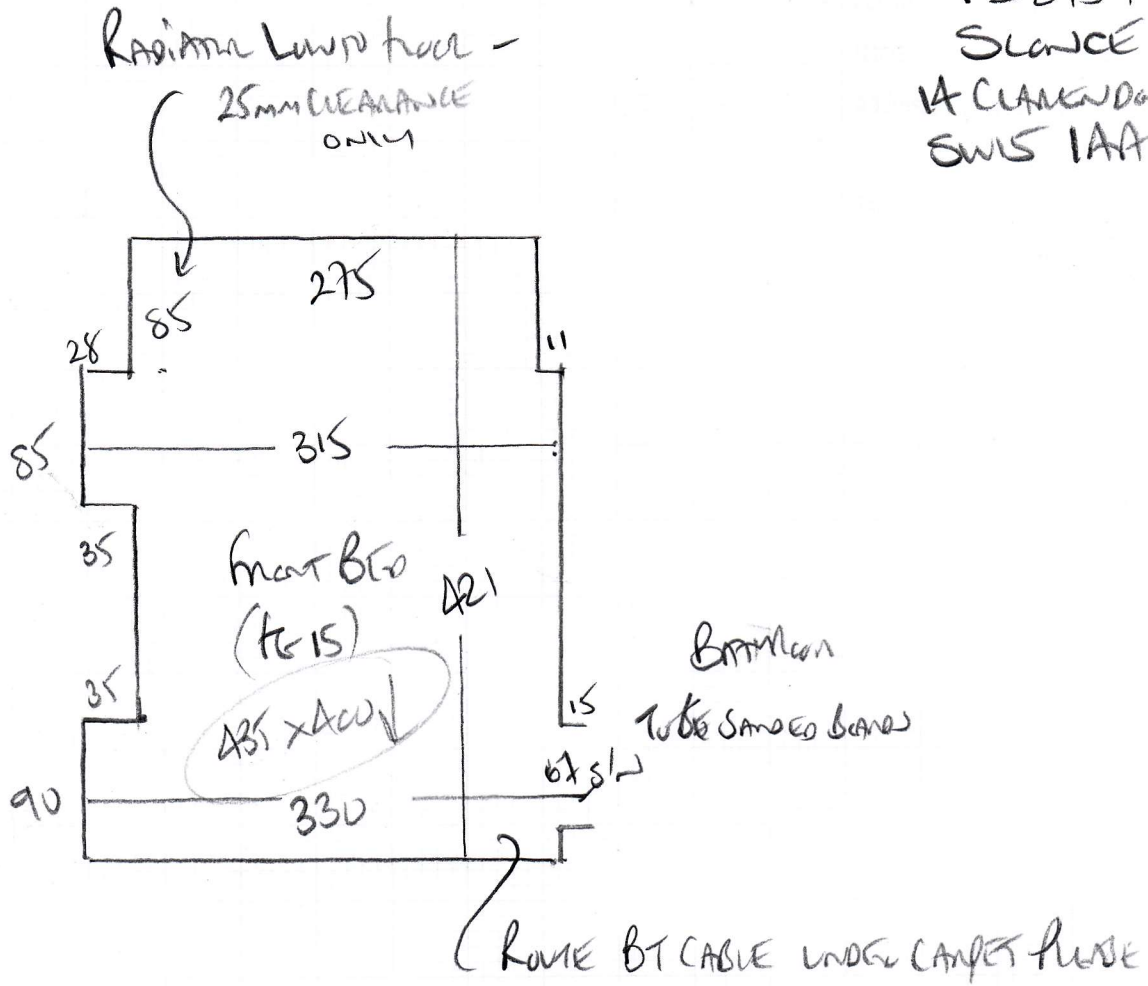 RADIATOR LOW TO FLOOR -
25MM CLEARANCE
ONLY
SLONCE
14 CLARENDO
SW15 1AA
275
85
28
11
85
315
35
FRONT BED
421
35
435 x 400
15
BATHROOM
TO BE SANDED BOARDS
67 S/N
90
330
ROUTE BT CABLE UNDER CARPET PLEASE